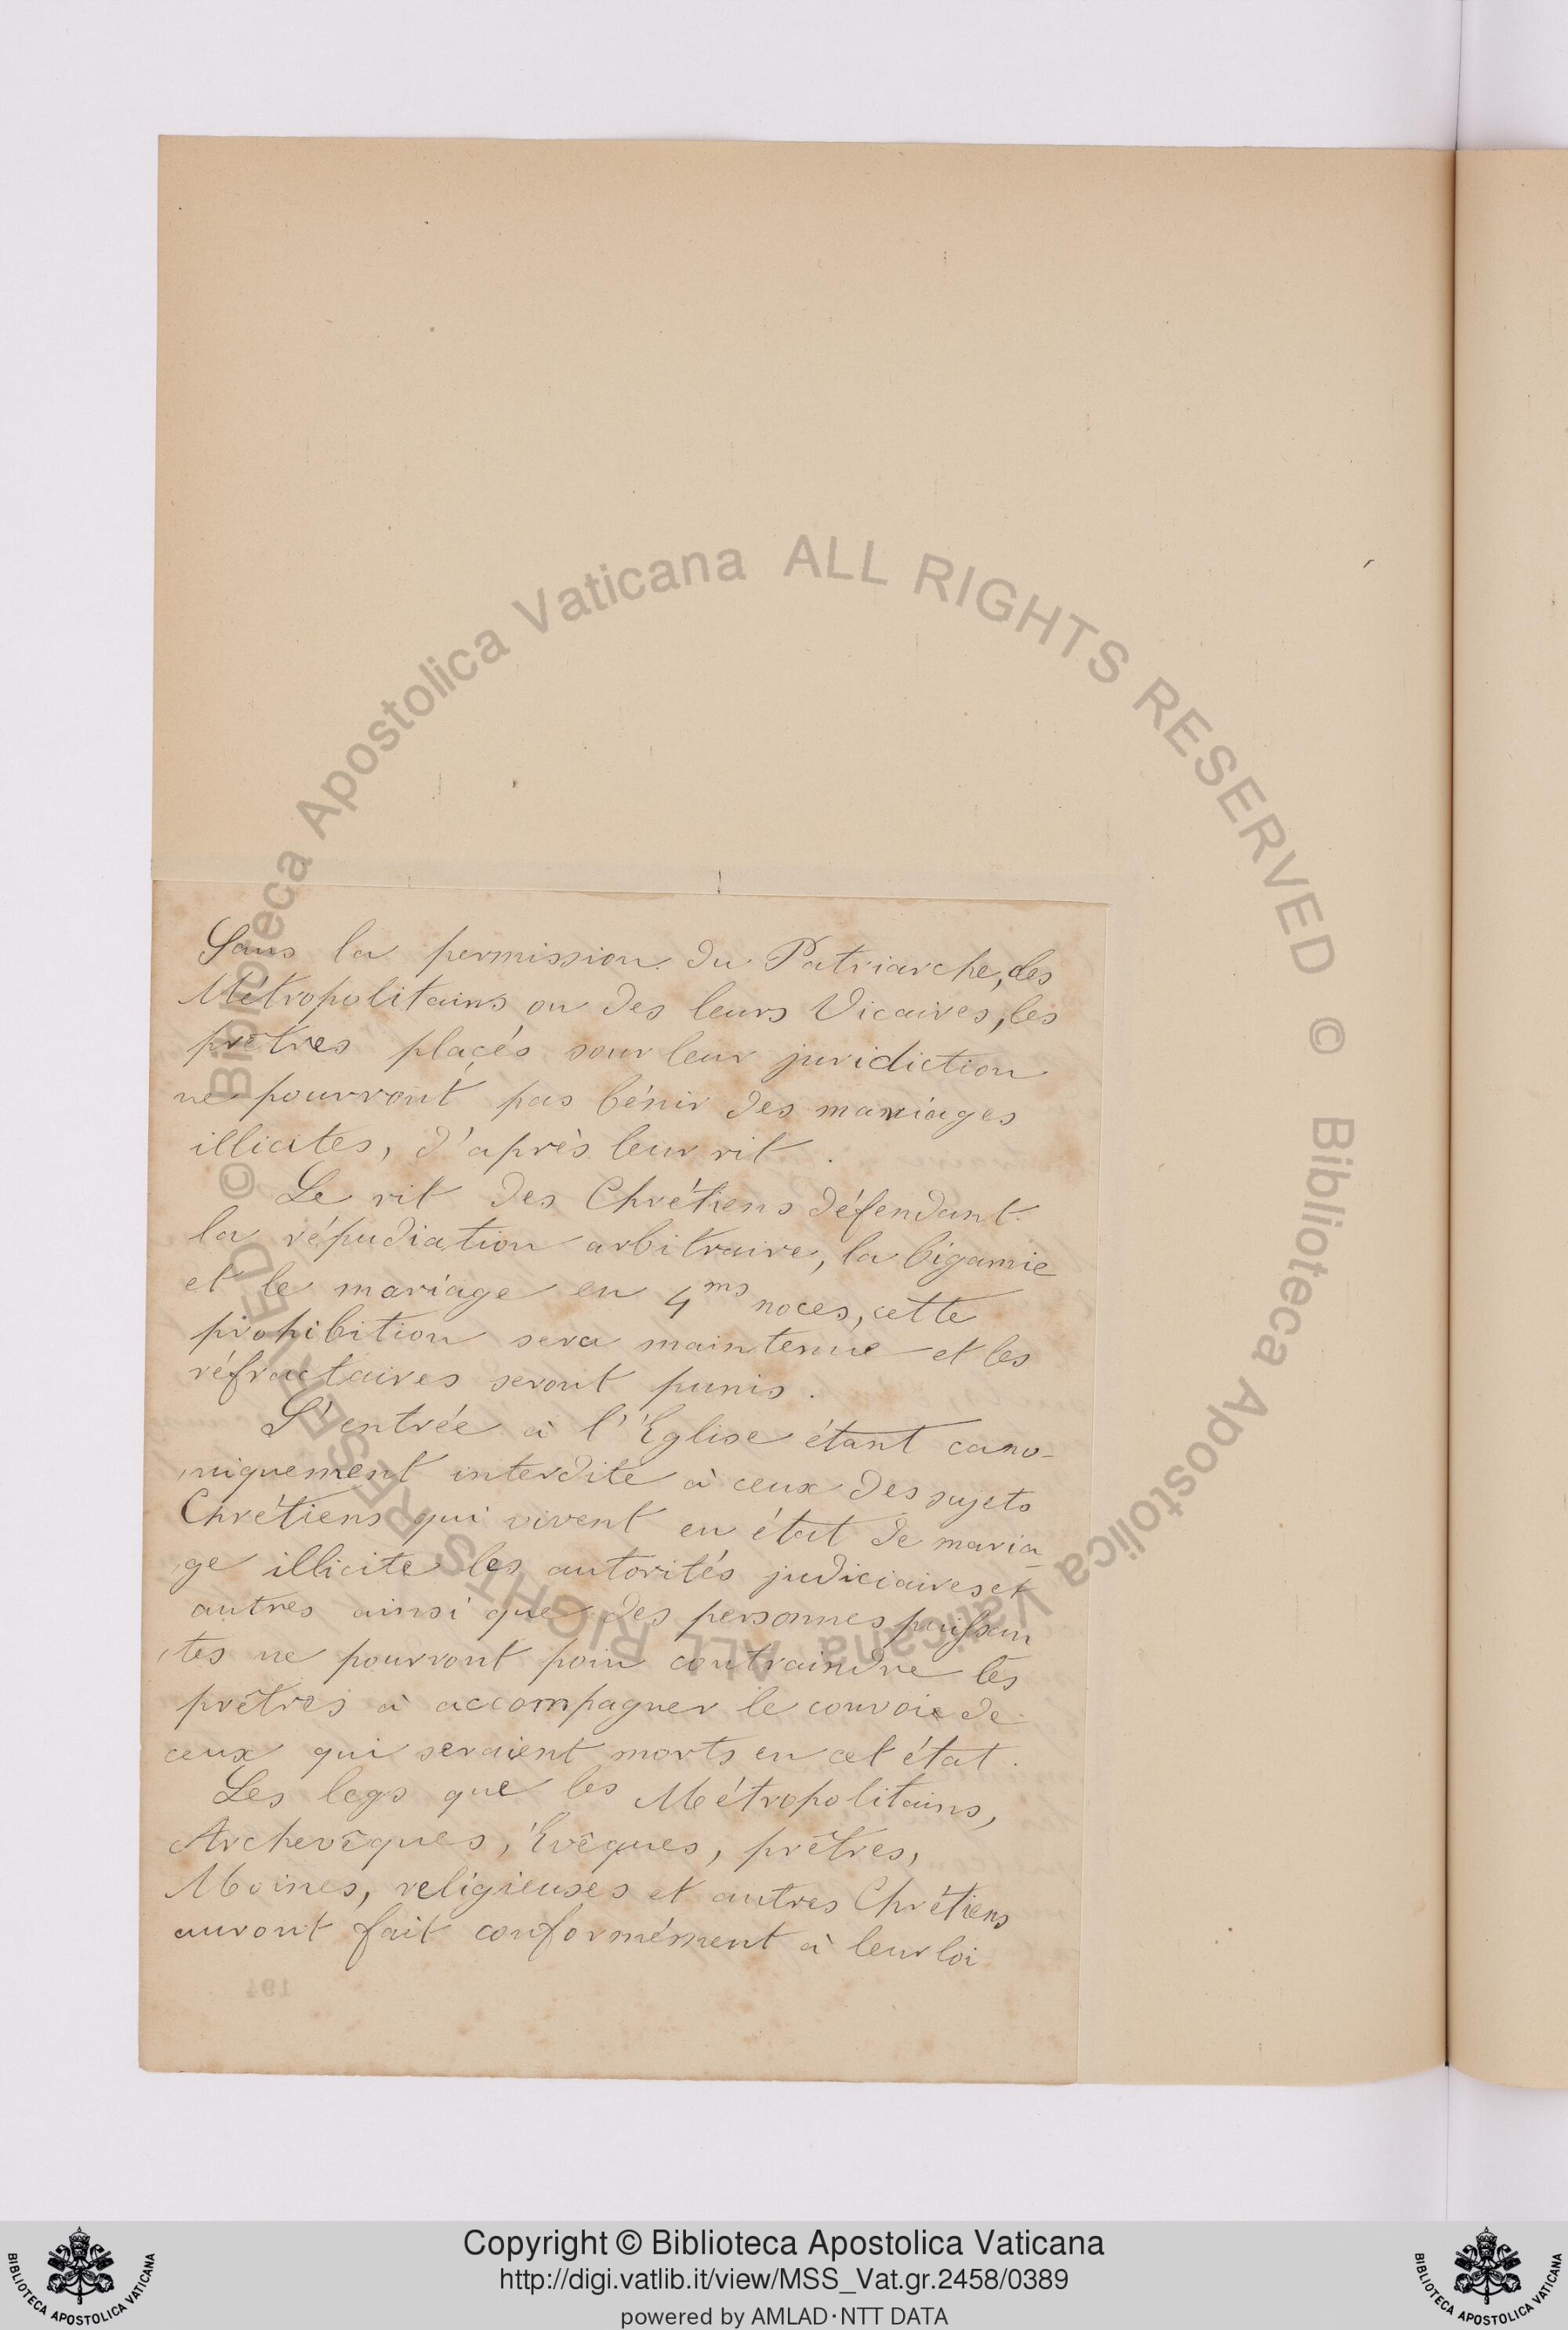 Sans la permission du Patriarche, des
Métropolitains ou des leurs Vicaires, les
prêtres placés sour leur juridiction
ne pourront pas bénir des mariages
illicites, d'après leur rit.
Le rit des Chrétiens défendant
la répudiation arbitraire, la bigamie
et le mariage en 4ms noces, cette
prohibition sera maintenue et les
réfractaires seront punis.
L'entrée à l'Eglise étant cano-
niquement interdite à ceux des sujets
Chrétiens qui vivent en état de maria-
ge illicite les autorités judiciaires et
autres ainsi que des personnes puissan
tes ne pourront poin contraindre les
prêtres à accompagner le convoie de
ceux qui seraient morts en cet état.
Les legs que les Métropolitains,
Archevêques, Evêques, prêtres,
Moines, religieuses et autres Chrétiens
auront fait conformément à leur loi
194
© Biblioteca Apostolica Vaticana ALL RIGHTS RESERVED © Biblioteca Apostolica Vaticana ALL RIGHTS RESERVED
Copyright © Biblioteca Apostolica Vaticana
http://digi.vatlib.it/view/MSS_Vat.gr.2458/0389
powered by AMLAD·NTT DATA
BIBLIOTECA APOSTOLICA VATICANA
BIBLIOTECA APOSTOLICA VATICANA